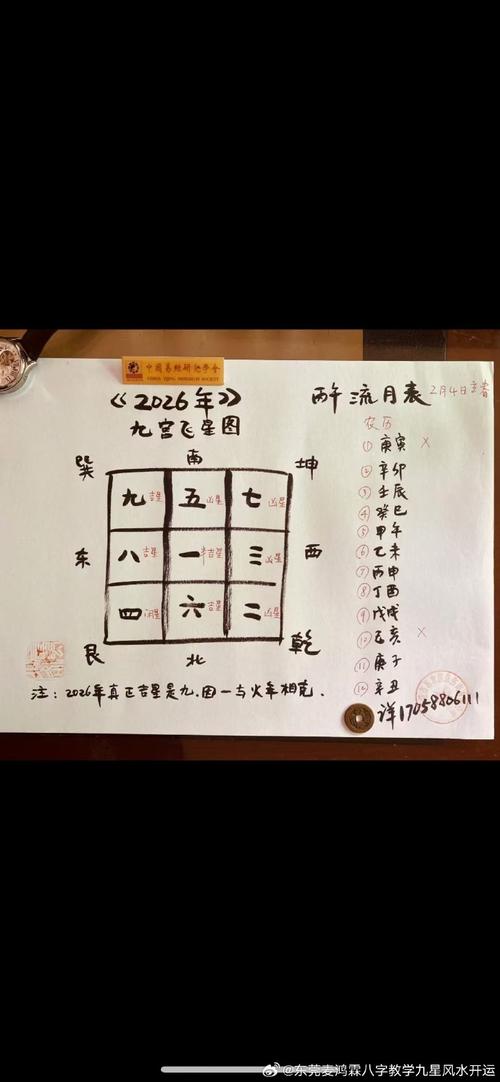 中国易经研究学会
CHINA YIJING RESEARCH SOCIETY
《2026年》
九宫飞星图
巽 南 坤
九 吉星 五 凶星 七 凶星
东 八 吉星 一 半吉星 三 凶星 西
四 闲星 六 吉星 二 凶星
艮 北 乾
注：2026年真正吉星是九.因一与火年相克.
丙午流月表 2月4日立春
农历
① 庚寅 ×
② 辛卯
③ 壬辰
④ 癸巳
⑤ 甲午
⑥ 乙未
⑦ 丙申
⑧ 丁酉
⑨ 戊戌
⑩ 乙亥 ×
⑪ 庚子
⑫ 辛丑
详17058806111
@东莞麦鸿霖八字教学九星风水开运